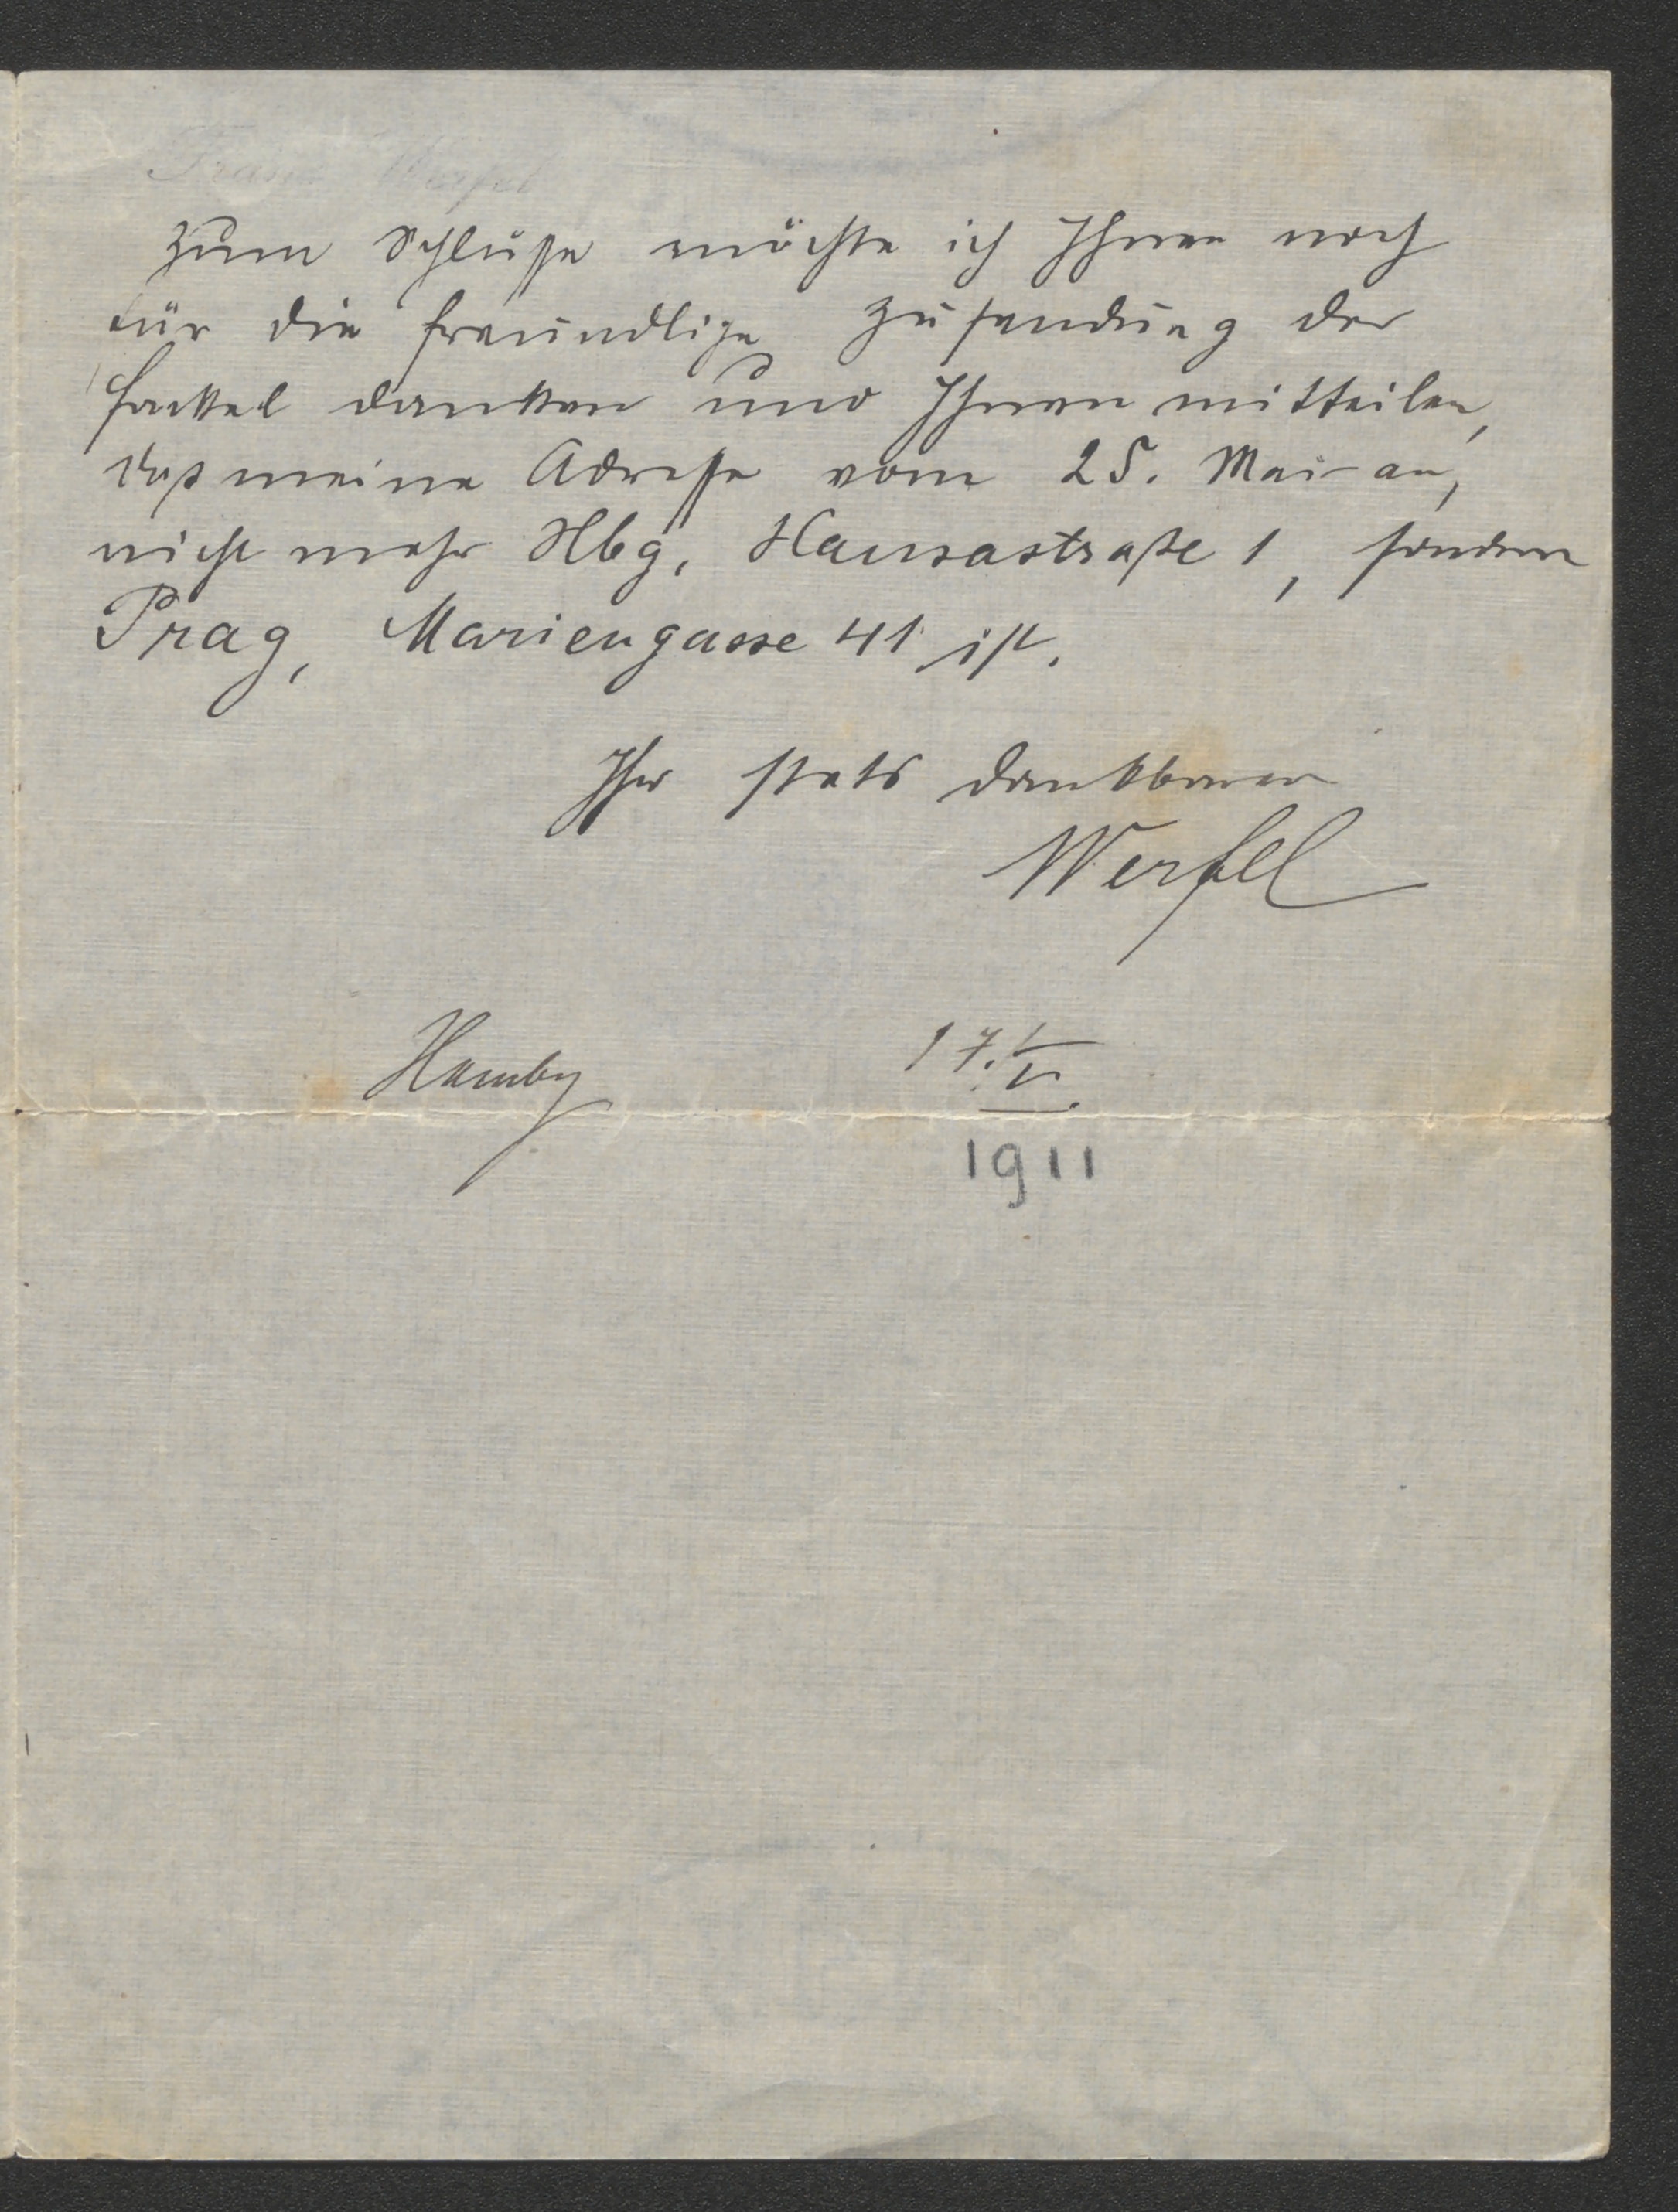 Franz Werfel
Zum Schluße möchte ich Ihnen noch
für die freundliche Zusendung der
Fackel danken und Ihnen mitteilen,
daß meine Adresse vom 25. Mai an,
nicht mehr Hbg, Hansastraße 1, sondern
Prag, Mariengasse 41 ist.
Ihr stets dankbarer
Werfel
Hambg 17. V.
1911